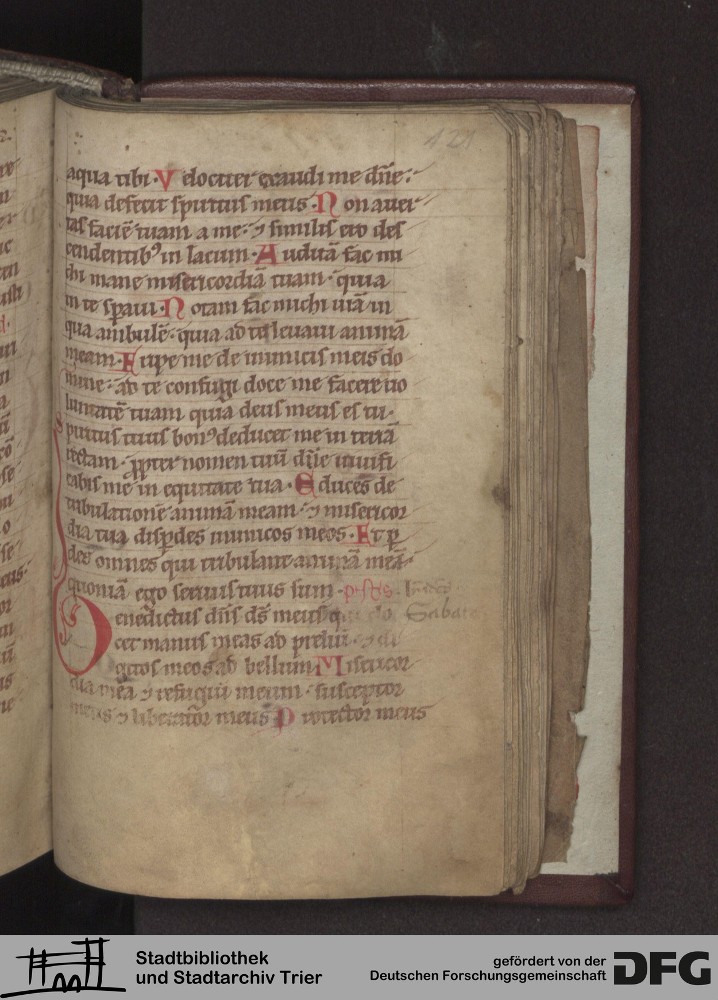 421
aqua tibi · Velociter exaudi me dn̄e :
quia defecit sp̄ritus meus · Non auer
tas faciē tuam a me · ⁊ similis ero des
cendentibꝰ in lacum · Auditā fac mi
chi mane misericordiā tuam · quia
in te sp̄aui · Notam fac michi uiā in
qua ambulē · quia ad te leuaui animā
meam · Eripe me de inimicis meis do
mine · ad te confugi doce me facere uo
luntatē tuam quia deus meus es tu ·
spiritus tuus bonꝰ deducet me in terrā
rectam · ꝓpter nomen tuū dn̄e uiuifi
cabis me in equitate tua · Educes de
tribulatione animā meam · ⁊ misericor
dia tua disꝑdes inimicos meos · Et ꝑ
des omnes qui tribulant animā meā ·
quoniā ego seruus tuus sum ·
Benedictus dn̄s ds̄ meus qui do Sabato
cet manus meas ad preliū · ⁊ di
gitos meos ad bellum Misericor
dia mea ⁊ refugiū meum · susceptor
meus ⁊ liberator meus Protector meus
Stadtbibliothek
und Stadtarchiv Trier
gefördert von der
Deutschen Forschungsgemeinschaft
DFG